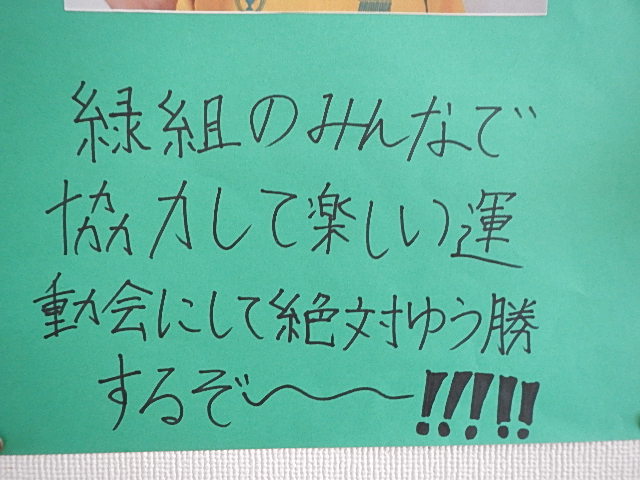 緑組のみんなで
協力して楽しい運
動会にして絶対ゆう勝
するぞ〜〜!!!!!